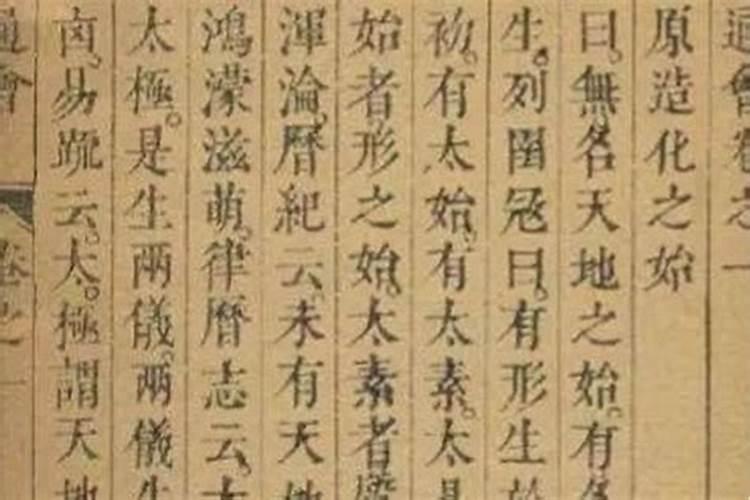 通會卷之一
原造化之始
曰無名天地之始有名
生列圄冦曰有形生於
初有太始有太素太易
始者形之始太素者
渾淪曆紀云未有天地
鴻濛滋萌律曆志云太
太極是生兩儀兩儀生
卤易䟽云太極謂天地
卷之一